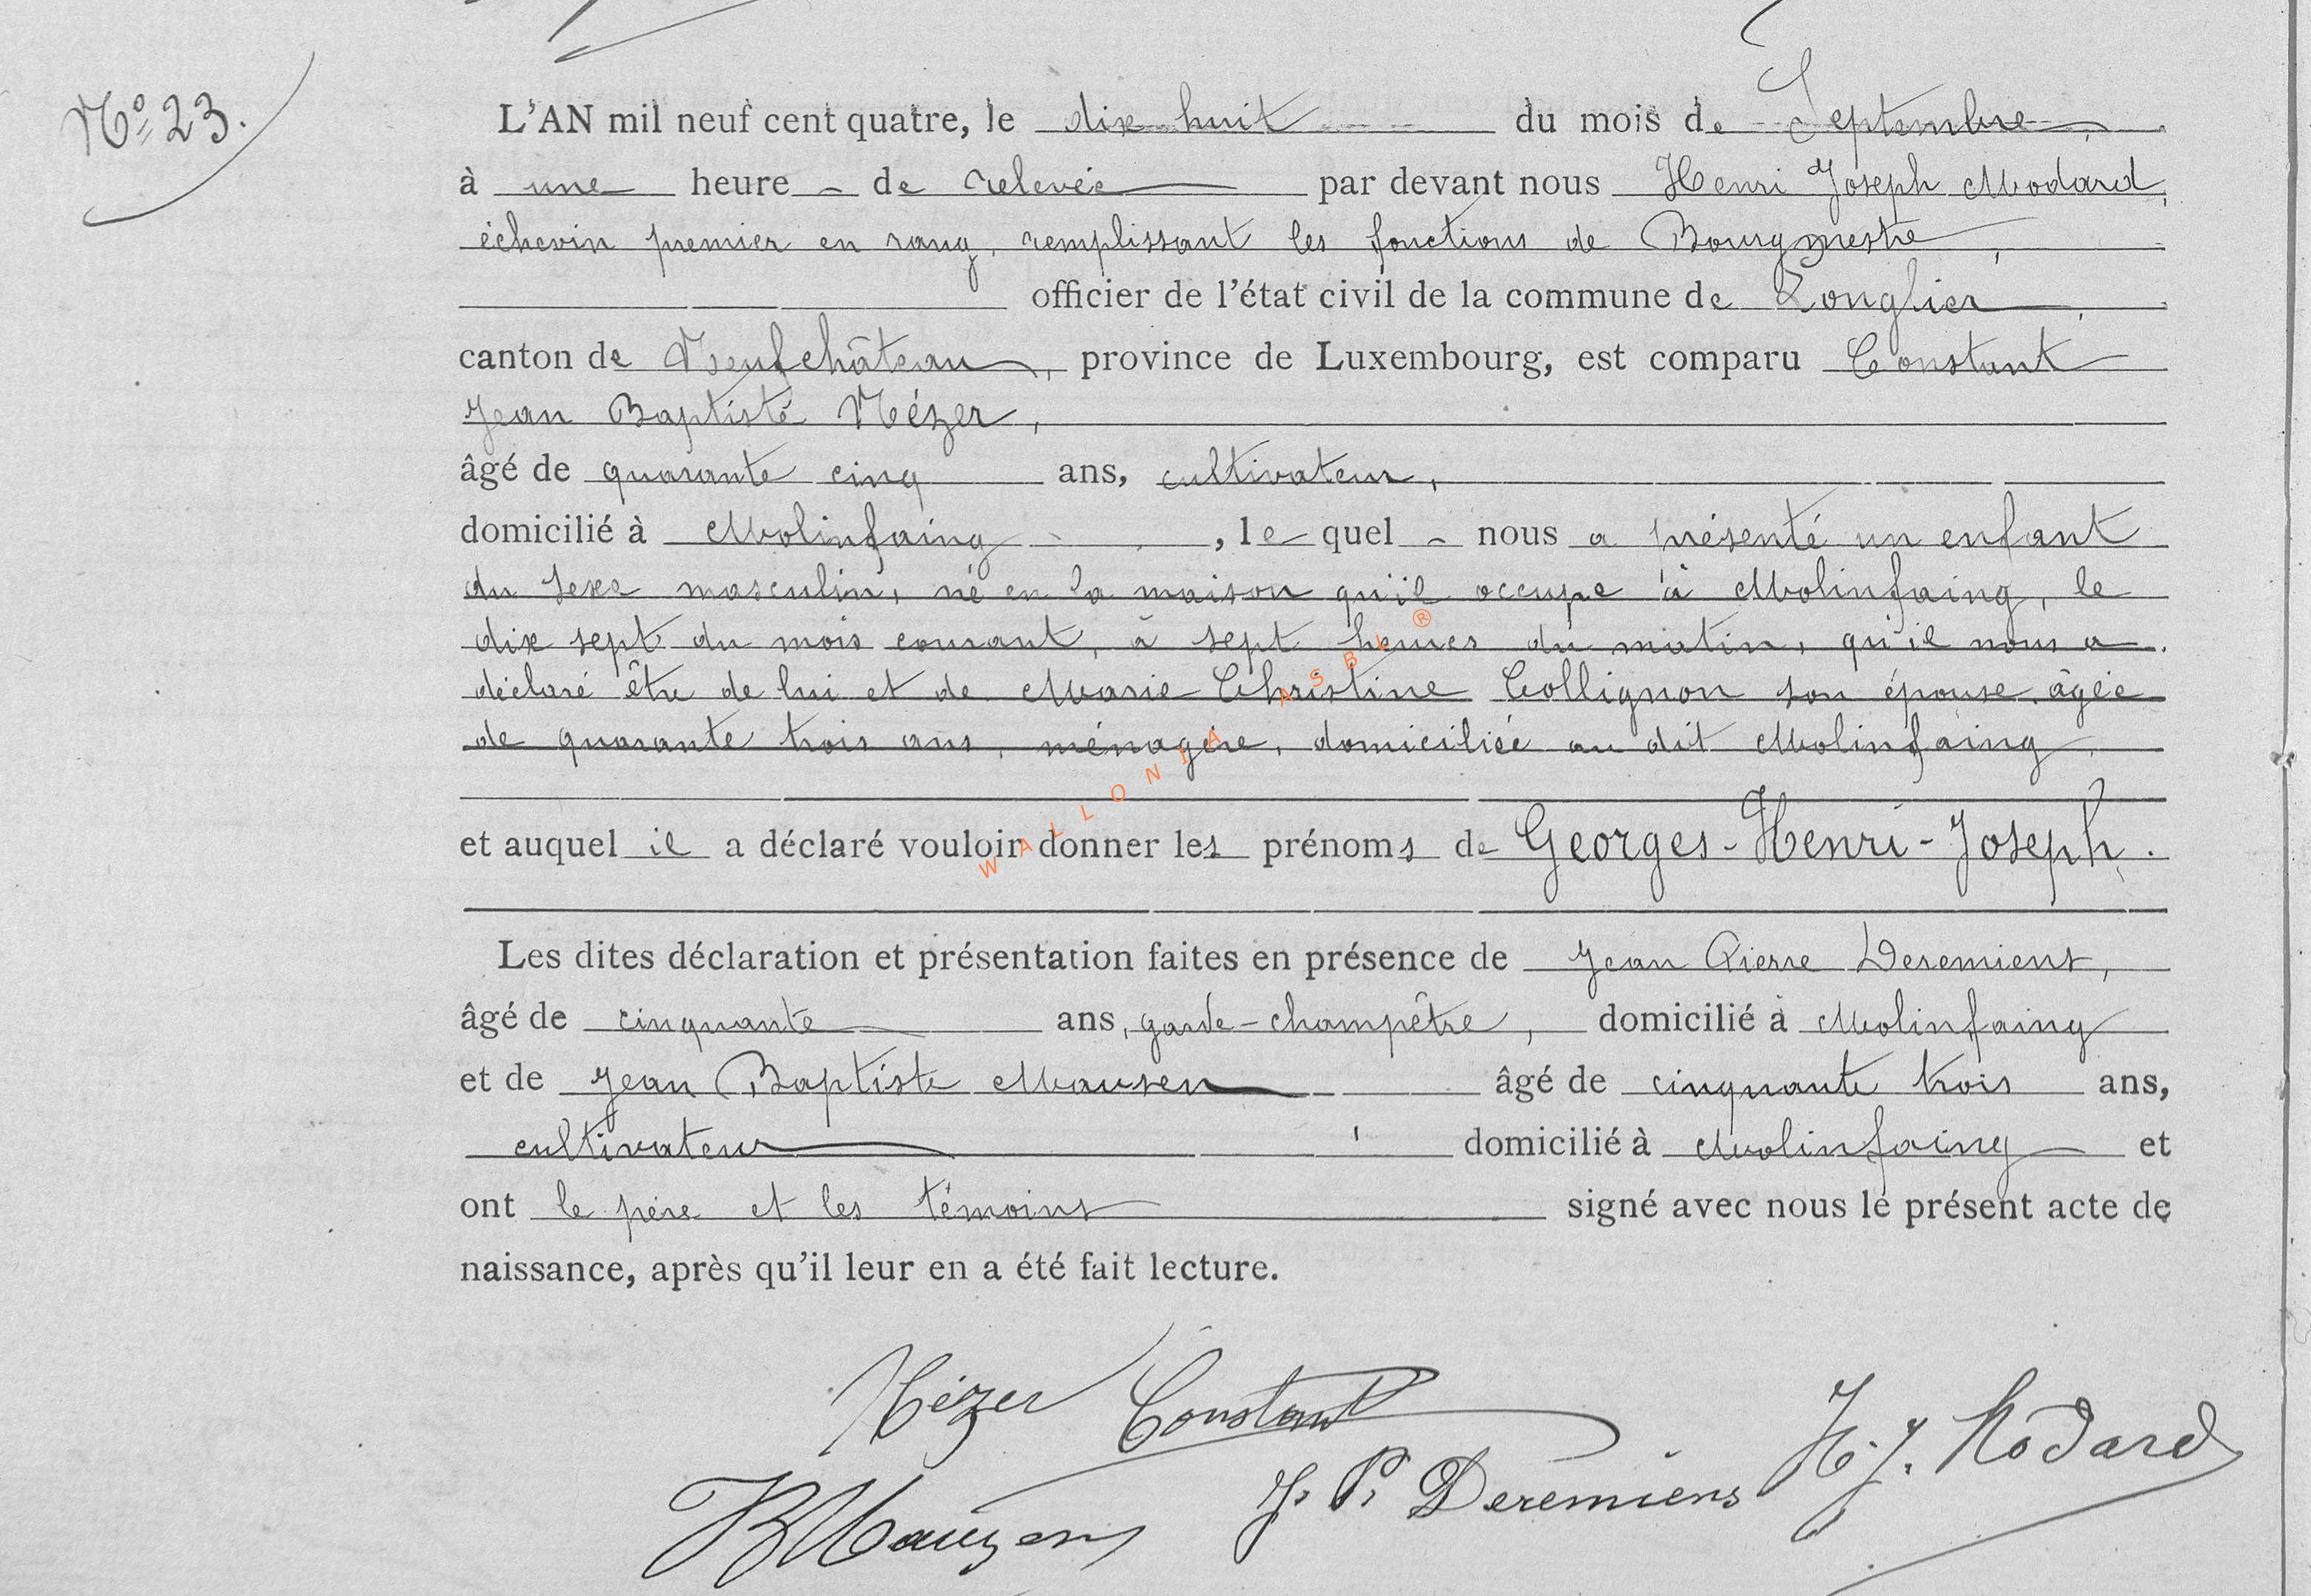 N° 23.
L'AN mil neuf cent quatre, le dix huit du mois de Septembre,
à une heure de relevée par devant nous Henri Joseph Modard,
échevin premier en rang, remplissant les fonctions de Bourgmestre,
officier de l'état civil de la commune de Longlier,
canton de Neufchâteau, province de Luxembourg, est comparu Constant
Jean Baptiste Nézer,
âgé de quarante cinq ans, cultivateur,
domicilié à Molinfaing, lequel nous a présenté un enfant
du sexe masculin, né en la maison qu'il occupe à Molinfaing, le
dix sept du mois courant, à sept heures du matin, qu'il nous a
déclaré être de lui et de Marie Christine Collignon son épouse âgée
de quarante trois ans, ménagère, domiciliée au dit Molinfaing,
et auquel il a déclaré vouloir donner les prénoms de Georges-Henri-Joseph.
Les dites déclaration et présentation faites en présence de Jean Pierre Deremiens,
âgé de cinquante ans, garde-champêtre, domicilié à Molinfaing
et de Jean Baptiste Mausen âgé de cinquante trois ans,
cultivateur domicilié à Molinfaing et
ont le père et les témoins signé avec nous le présent acte de
naissance, après qu'il leur en a été fait lecture.
Nézer Constant
H. J. Modard
J. P. Deremiens
JB Mauzen
WALLONIA ASBL ®